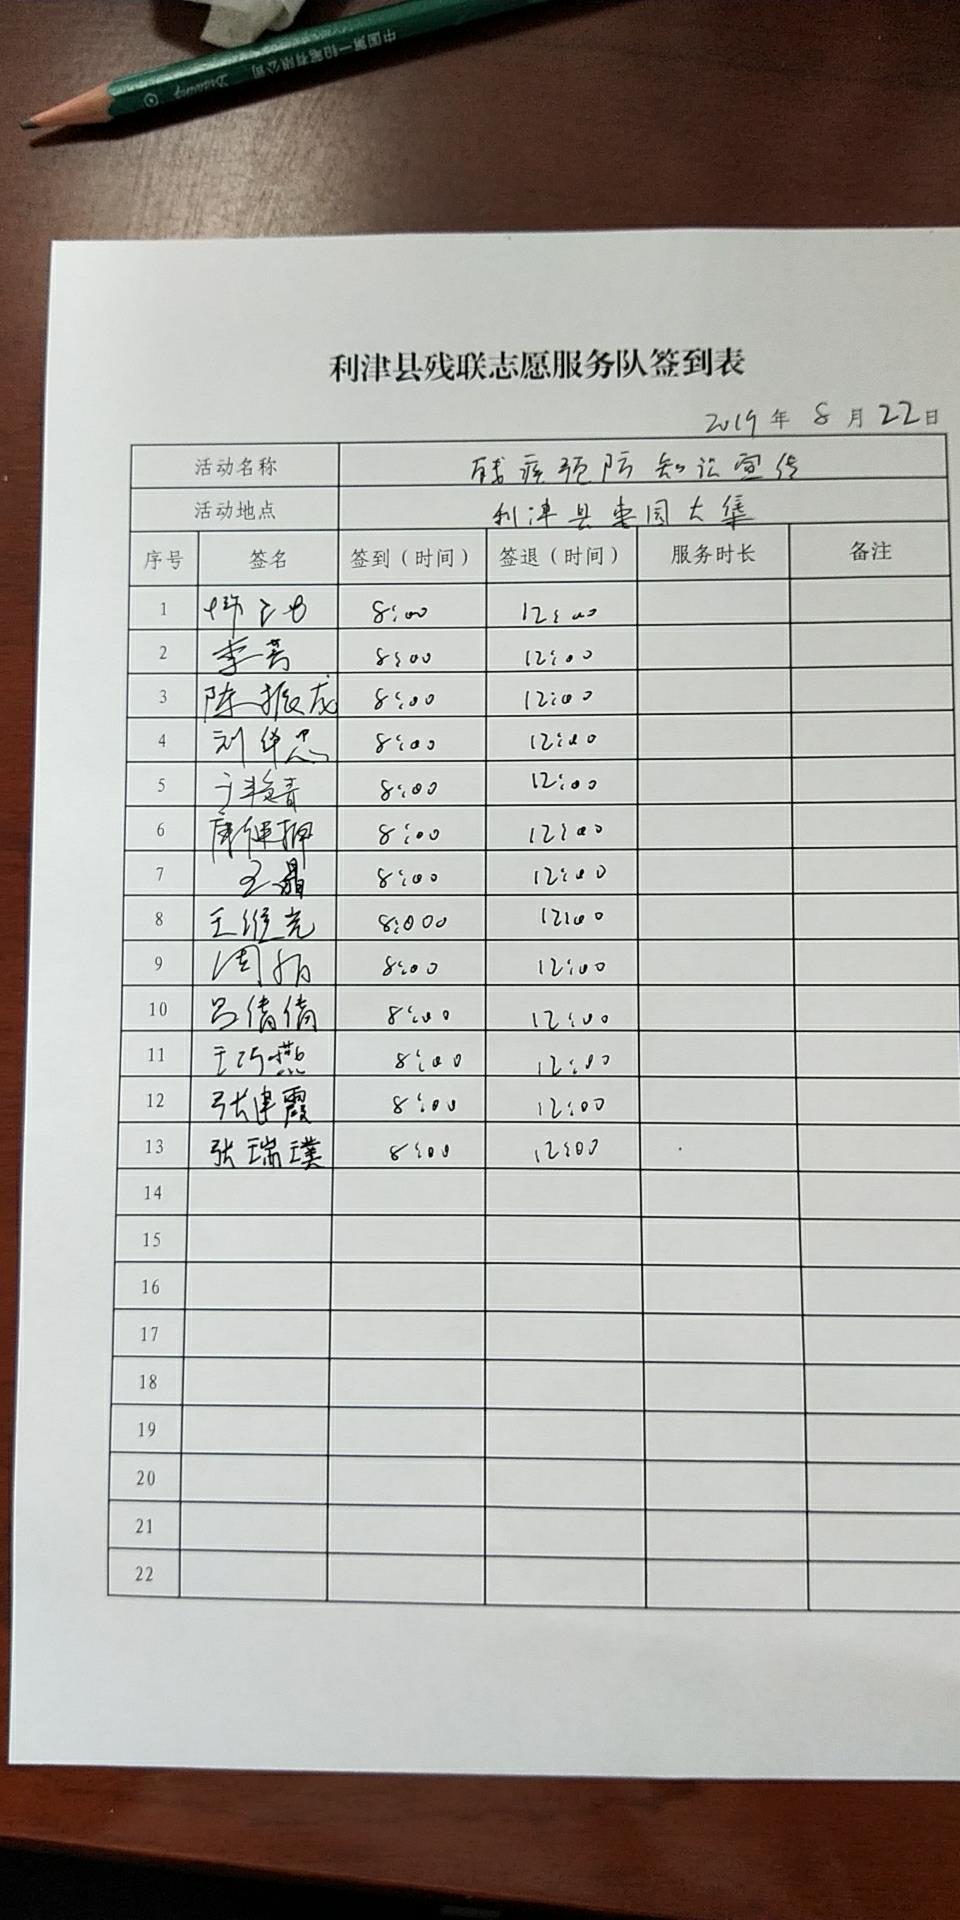 中国第一铅笔有限公司
利津县残联志愿服务队签到表
2019年8月22日
活动名称 残疾预防知识宣传
活动地点 利津县枣园大集
序号 签名 签到（时间） 签退（时间） 服务时长 备注
1 8:00 12:00
2 李芳 8:00 12:00
3 陈振成 8:00 12:00
4 刘华忠 8:00 12:00
5 8:00 12:00
6 8:00 12:00
7 王晶 8:00 12:00
8 王维亮 8:000 12:00
9 周 8:00 12:00
10 吕倩倩 8:00 12:00
11 王巧燕 8:00 12:00
12 张建霞 8:00 12:00
13 张瑞璞 8:00 12:00
14
15
16
17
18
19
20
21
22